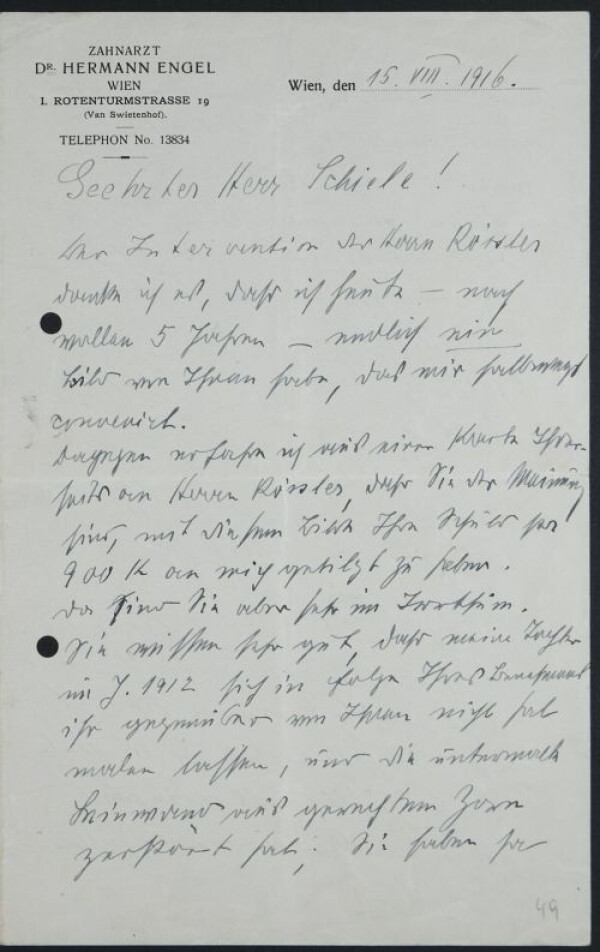 ZAHNARZT
DR. HERMANN ENGEL
WIEN
I. ROTENTURMSTRASSE 19
(Van Swietenhof).
TELEPHON No. 13834
Wien, den 15. VIII. 1916.
Geehrter Herr Schiele!
Der Intervention des Herrn Rössler
danke ich es, dass ich heute – nach
vollen 5 Jahren – endlich ein
Bild von Ihnen habe, das mir halbwegs
convenirt.
Dagegen erfahre ich aus einer Karte Ihrer-
seits an Herrn Rössler, dass Sie der Meinung
sind, mit diesem Bilde Ihre Schuld per
900 K an mich getilgt zu haben.
Da sind Sie aber sehr im Irrthum.
Sie wissen sehr gut, dass meine Tochter
im J. 1912 sich in Folge Ihres Benehmens
ihr gegenüber von Ihnen nicht hat
malen lassen, und die untermalte
Leinwand aus gerechtem Zorn
zerstört hat; Sie haben ja
49